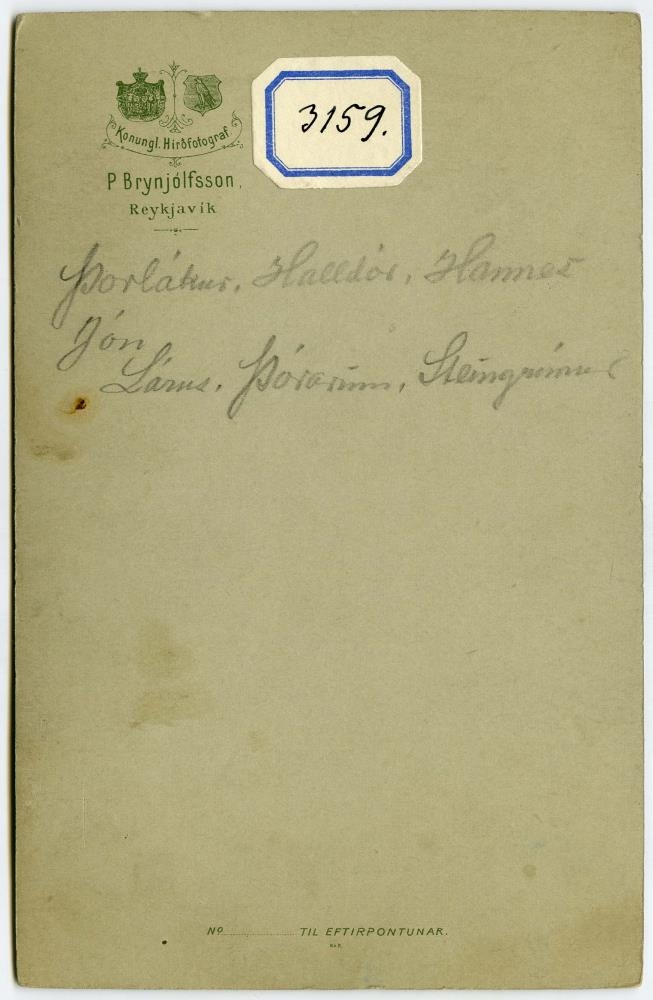 Konungl. Hirðfotograf
3159.
P Brynjólfsson,
Reykjavík
Þorlákur. Halldór. Hannes
Jón
Lárus. Þórarinn. Steingrímur
No TIL EFTIRPÖNTUNAR.